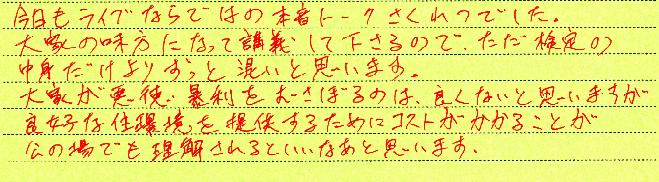 今日もライブならではの本音トークさくれつでした。
大家の味方になって講義して下さるので、ただ検定の
中身だけよりずっと濃いと思います。
大家が悪徳・暴利をむさぼるのは、良くないと思いますが
良好な住環境を提供するためにコストがかかることが
公の場でも理解されるといいなあと思います。